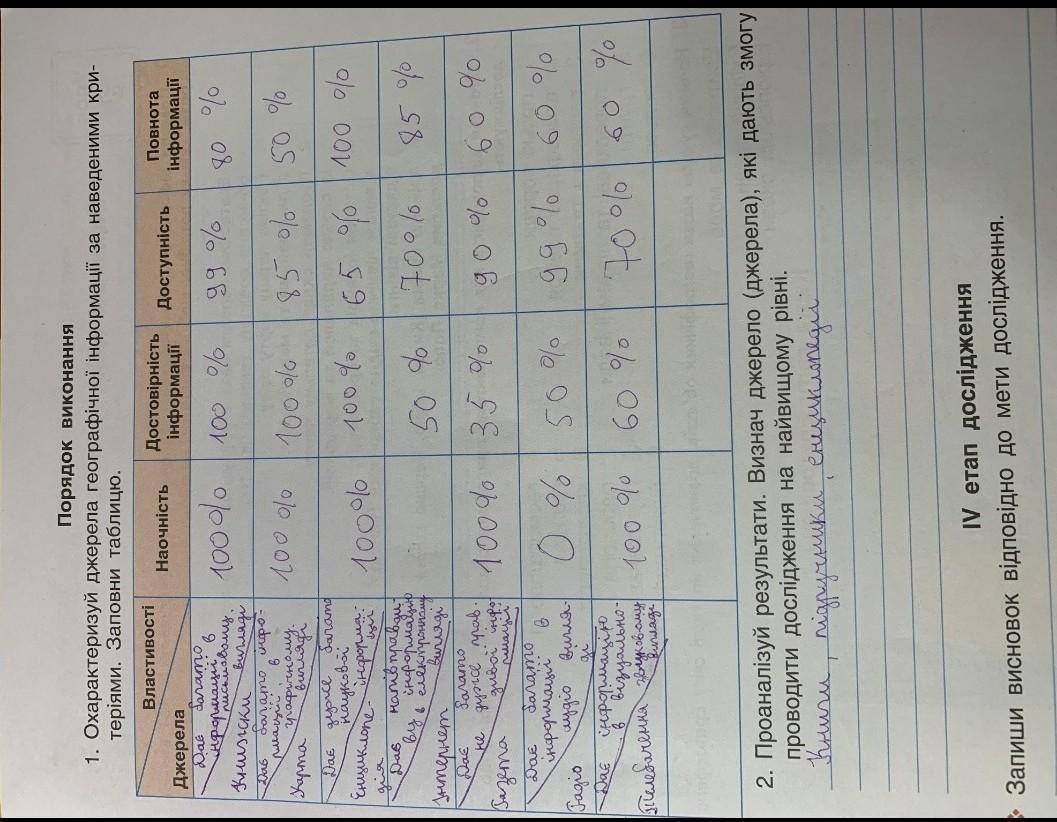 Порядок виконання
1. Охарактеризуй джерела географічної інформації за наведеними кри-
теріями. Заповни таблицю.
Властивості
Джерела
Наочність
Достовірність
інформації
Доступність
Повнота
інформації
Дає багато
інформації в
письмовому
вигляді.
Книжки
100%
100 %
99 %
80 %
Дає багато інфо-
рмації в
графічному
вигляді
Карта
100 %
100 %
85 %
50 %
Дає дуже багато
наукової
інформа-
ції
Енциклопе-
дія
100%
100 %
65 %
100 %
Дає напівправди-
ву інформацію
в електронному
вигляді
Інтернет
50 %
70%
85 %
Дає багато
не дуже прав-
дивої інфо-
рмації.
Газета
100%
35 %
90 %
60 %
Дає багато
інформації в
аудіо вигля-
ді
Радіо
0 %
50 %
99 %
60 %
Дає інформацію
в візуально-
звуковому
вигляді
Телебачення
100 %
60 %
70%
60 %
2. Проаналізуй результати. Визнач джерело (джерела), які дають змогу
проводити дослідження на найвищому рівні.
Книги, підручники, енециклопедії.
IV етап дослідження
Запиши висновок відповідно до мети дослідження.